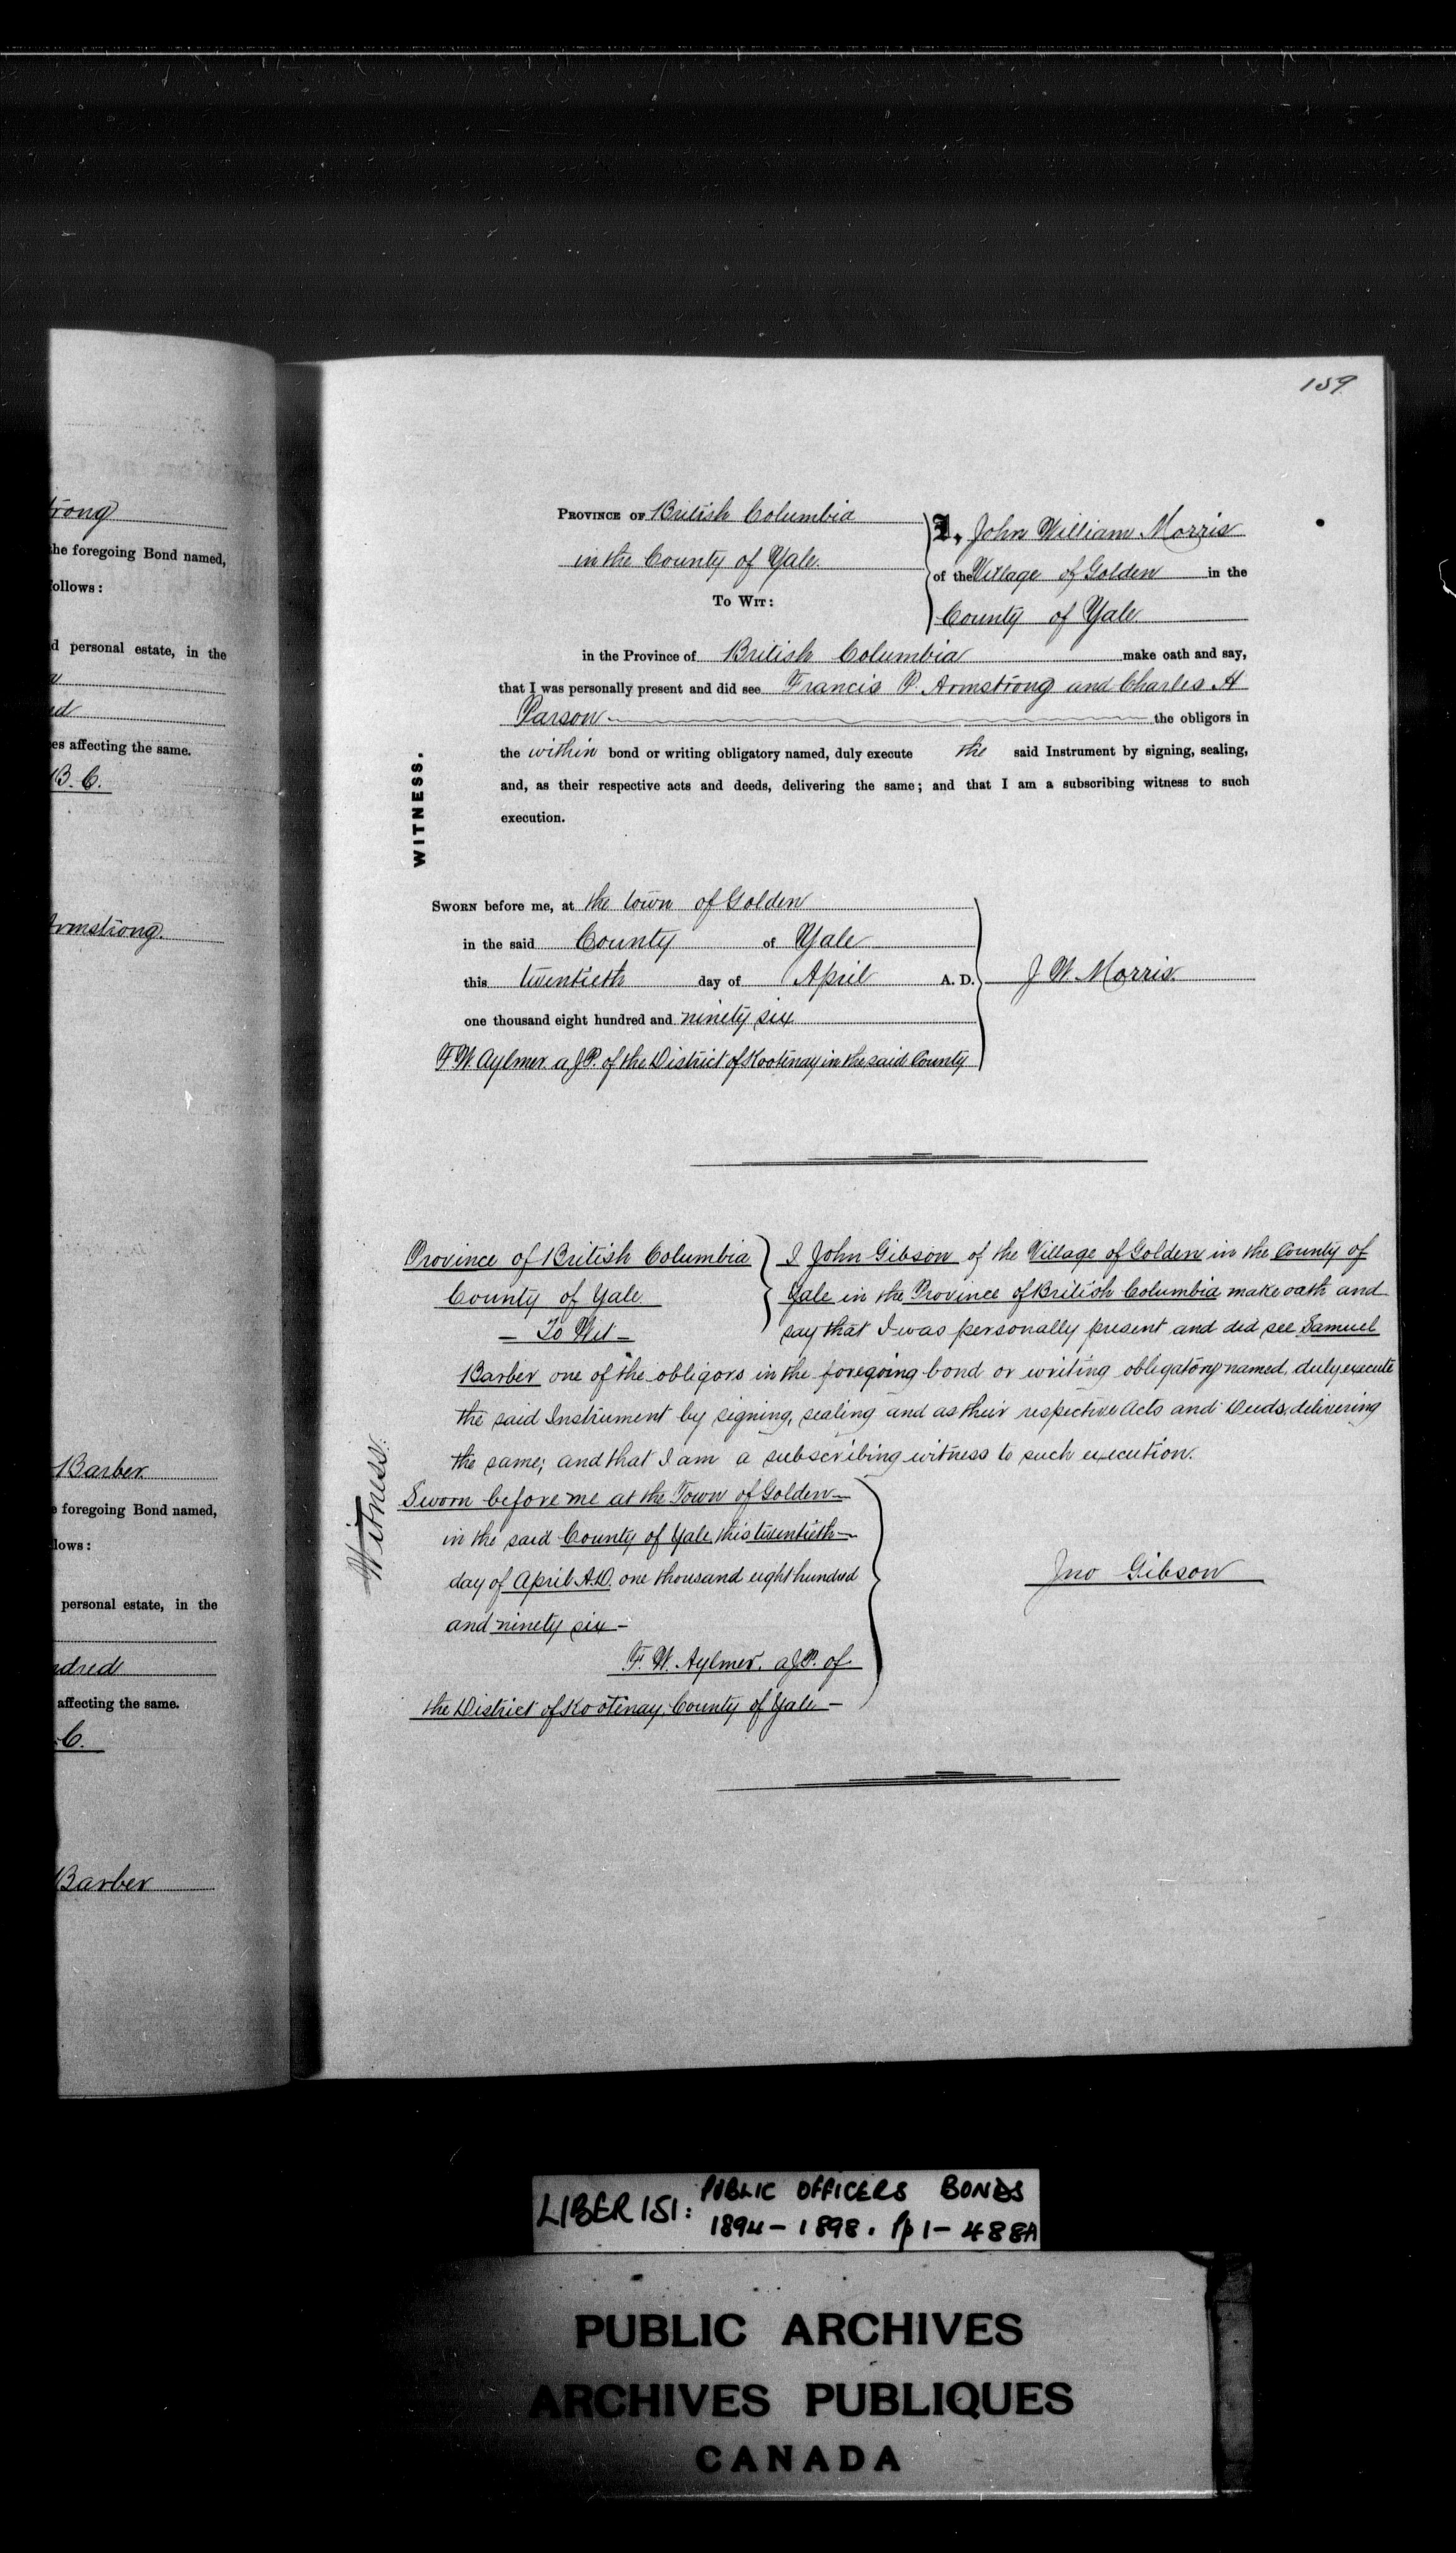 159
rong
the foregoing Bond named,
follows:
d personal estate, in the
ed
es affecting the same.
B. C.
Armstrong.
Barber
e foregoing Bond named,
lows:
personal estate, in the
ndred
affecting the same.
C.
Barber
PROVINCE OF British Columbia
in the County of Yale.
TO WIT:
I, John William Morris
of the Village of Golden in the
County of Yale
in the Province of British Columbia make oath and say,
that I was personally present and did see Francis P. Armstrong and Charles H
Parson the obligors in
the within bond or writing obligatory named, duly execute the said Instrument by signing, sealing,
and, as their respective acts and deeds, delivering the same; and that I am a subscribing witness to such
execution.
WITNESS.
SWORN before me, at the town of Golden
in the said County of Yale
this twentieth day of April A. D.
one thousand eight hundred and ninety six
F. W. Aylmer a J.P. of the District of Kootenay in the said County
J. W. Morris.
Province of British Columbia
County of Yale
— To Wit —
I John Gibson of the Village of Golden in the County of
Yale in the Province of British Columbia make oath and
say that I was personally present and did see Samuel
Barber one of the obligors in the foregoing bond or writing obligatory named, duly execute
the said Instrument by signing, sealing and as their respective Acts and Deeds, delivering
the same; and that I am a subscribing witness to such execution.
Witness.
Sworn before me at the Town of Golden
in the said County of Yale this twentieth
day of April A.D. one thousand eight hundred
and ninety six —
F. W. Aylmer. a J.P. of
the District of Kootenay, County of Yale —
Jno Gibson
LIBER 151: PUBLIC OFFICERS BONDS
1894 - 1898. pp 1 - 488A
PUBLIC ARCHIVES
ARCHIVES PUBLIQUES
CANADA